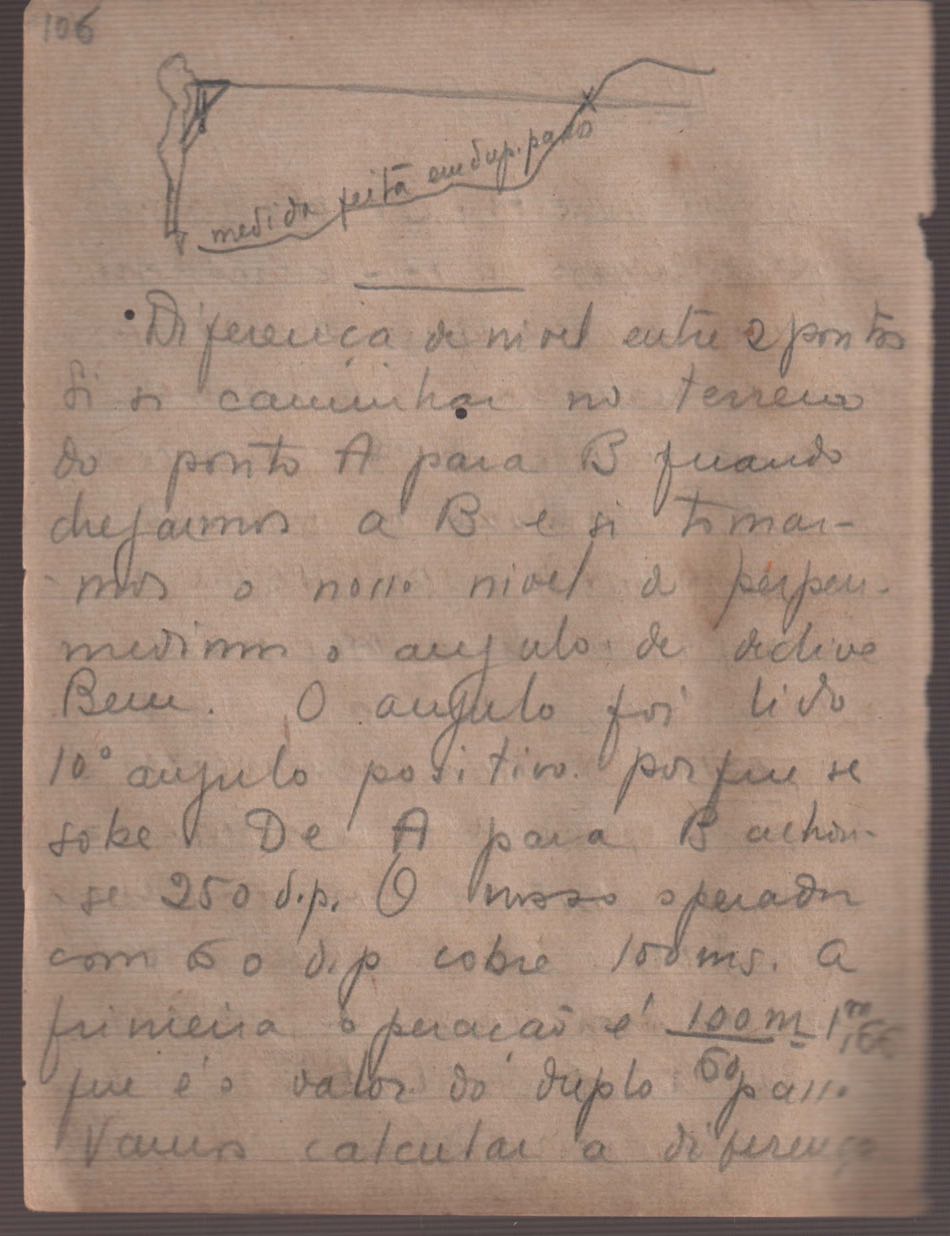 106
medida feita em dup. passo
Diferença de nivel entre 2 pontos
Si si caminhar no terreno
do ponto A para B quando
chegarmos a B e si tomar-
mos o nosso nivel de perpen-
medimos o angulo de declive
Bem. O angulo foi lido
10° angulo positivo. porque se
sobe. De A para B achou-
-se 250 d.p. O nosso operador
com 60 d.p cobre 100 ms. A
primeira operacaõ é 100 m 1m
60
que é o valor do duplo passo.
Vamos calcular a diferença